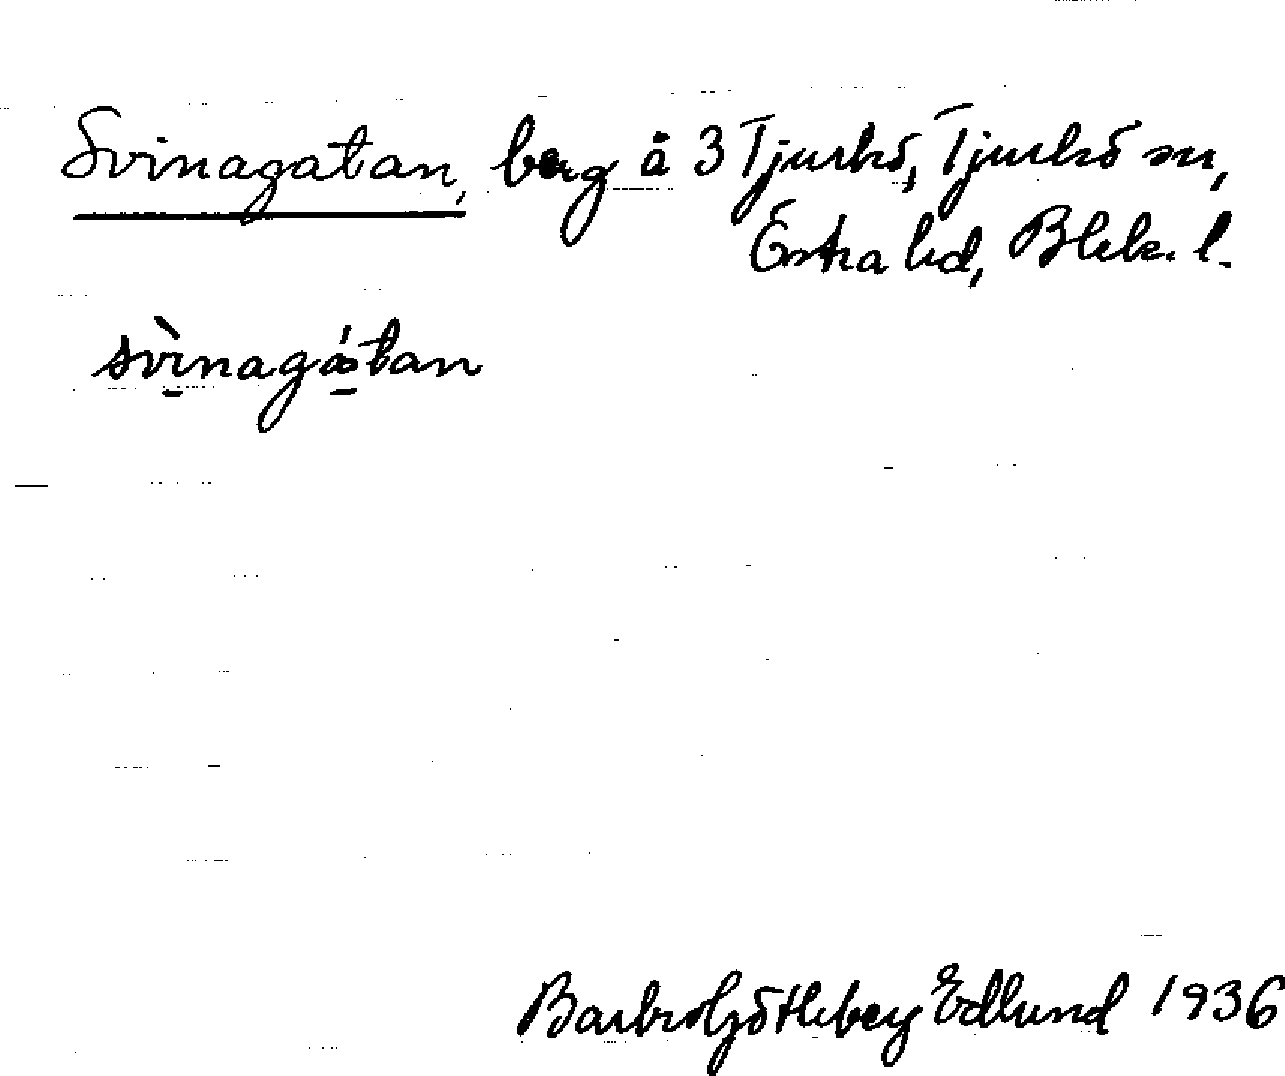 Svinagatan, berg å 3 Tjurkö, Tjurkö sn,
Östra hd, Blek. l.
svìnagátan
Barbro Götleberg Edlund 1936